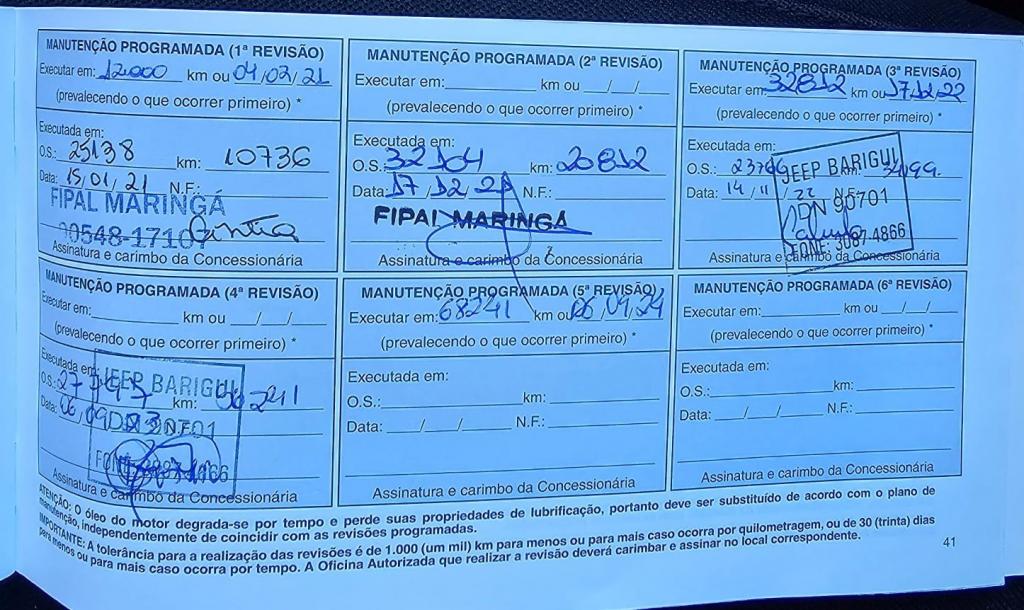 MANUTENÇÃO PROGRAMADA (1ª REVISÃO)
Executar em: 12.000 km ou 04/02/21
(prevalecendo o que ocorrer primeiro) *
Executada em:
O.S.: 25138 km: 10736
Data: 15/01/21 N.F.:
FIPAL MARINGÁ
Cintia
Assinatura e carimbo da Concessionária
MANUTENÇÃO PROGRAMADA (2ª REVISÃO)
Executar em: km ou / /
(prevalecendo o que ocorrer primeiro) *
Executada em:
O.S.: 32104 km: 20812
Data: 17/12/21 N.F.:
FIPAL MARINGÁ
Assinatura e carimbo da Concessionária
MANUTENÇÃO PROGRAMADA (3ª REVISÃO)
Executar em: 32812 km ou 17/12/22
(prevalecendo o que ocorrer primeiro) *
Executada em:
O.S.:
Data: 14/11/22
JEEP BARIGUI
DN 90701
FONE: 3087-4866
Assinatura e carimbo da Concessionária
MANUTENÇÃO PROGRAMADA (4ª REVISÃO)
Executar em: km ou / /
(prevalecendo o que ocorrer primeiro) *
Executada em:
O.S.: km: 56241
Data: 06/09
JEEP BARIGUI
Assinatura e carimbo da Concessionária
MANUTENÇÃO PROGRAMADA (5ª REVISÃO)
Executar em: 68241 km ou 06/09/24
(prevalecendo o que ocorrer primeiro) *
Executada em:
O.S.: km:
Data: / / N.F.:
Assinatura e carimbo da Concessionária
MANUTENÇÃO PROGRAMADA (6ª REVISÃO)
Executar em: km ou / /
(prevalecendo o que ocorrer primeiro) *
Executada em:
O.S.: km:
Data: / / N.F.:
Assinatura e carimbo da Concessionária
ATENÇÃO: O óleo do motor degrada-se por tempo e perde suas propriedades de lubrificação, portanto deve ser substituído de acordo com o plano de
manutenção, independentemente de coincidir com as revisões programadas.
IMPORTANTE: A tolerância para a realização das revisões é de 1.000 (um mil) km para menos ou para mais caso ocorra por quilometragem, ou de 30 (trinta) dias
para menos ou para mais caso ocorra por tempo. A Oficina Autorizada que realizar a revisão deverá carimbar e assinar no local correspondente.
41